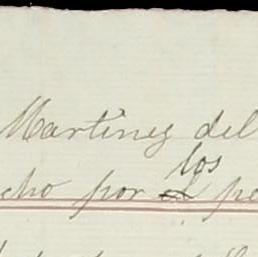 Martinez del
los
cho por pe